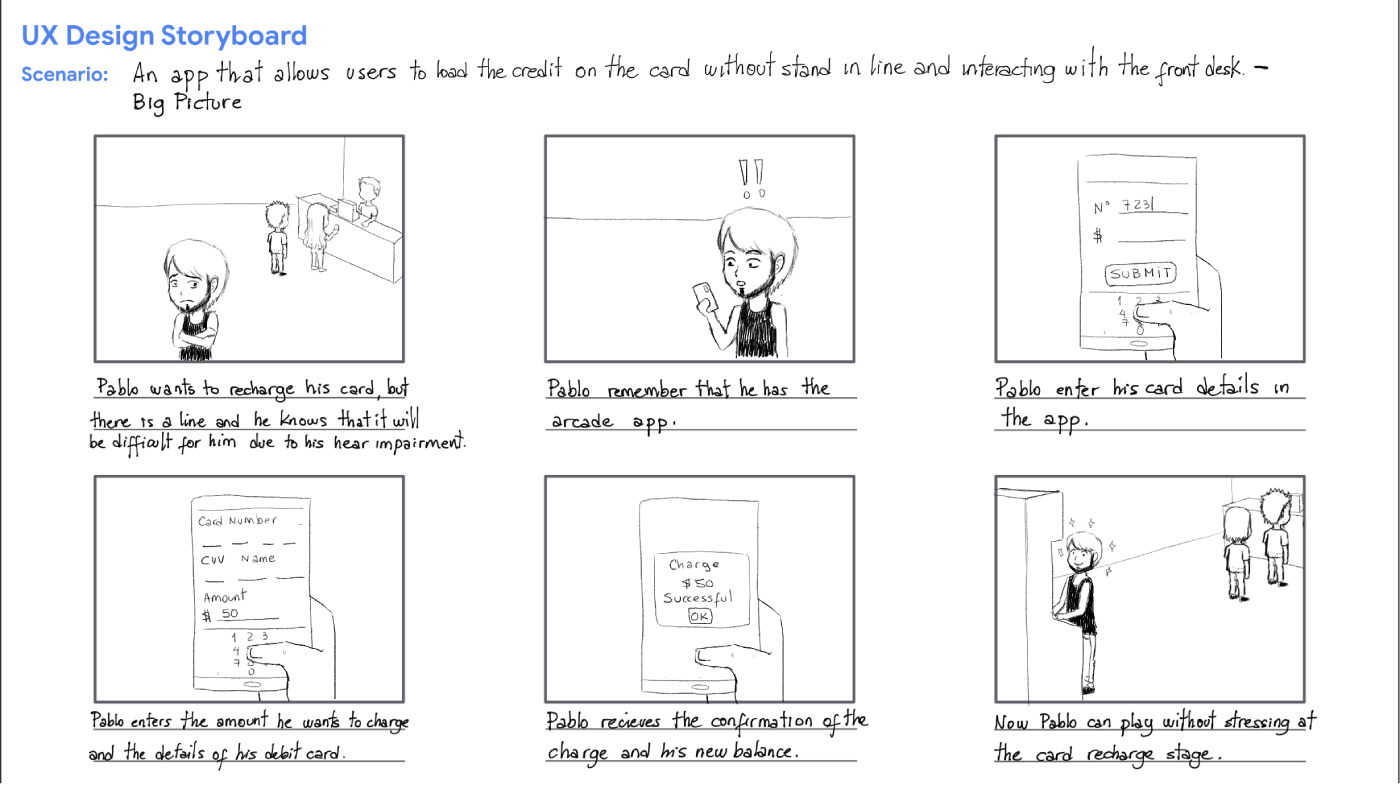 UX Design Storyboard
Scenario: An app that allows users to load the credit on the card without stand in line and interacting with the front desk. –
Big Picture
!!
N° 723|
$
SUBMIT
1 2 3
4
7 8
Pablo wants to recharge his card, but
there is a line and he knows that it will
be difficult for him due to his hear impairment.
Pablo remember that he has the
arcade app.
Pablo enter his card details in
the app.
Card Number
CVV Name
Amount
$ 50
1 2 3
4
7
0
Charge
$50
Successful
OK
Pablo enters the amount he wants to charge
and the details of his debit card.
Pablo recieves the confirmation of the
charge and his new balance.
Now Pablo can play without stressing at
the card recharge stage.